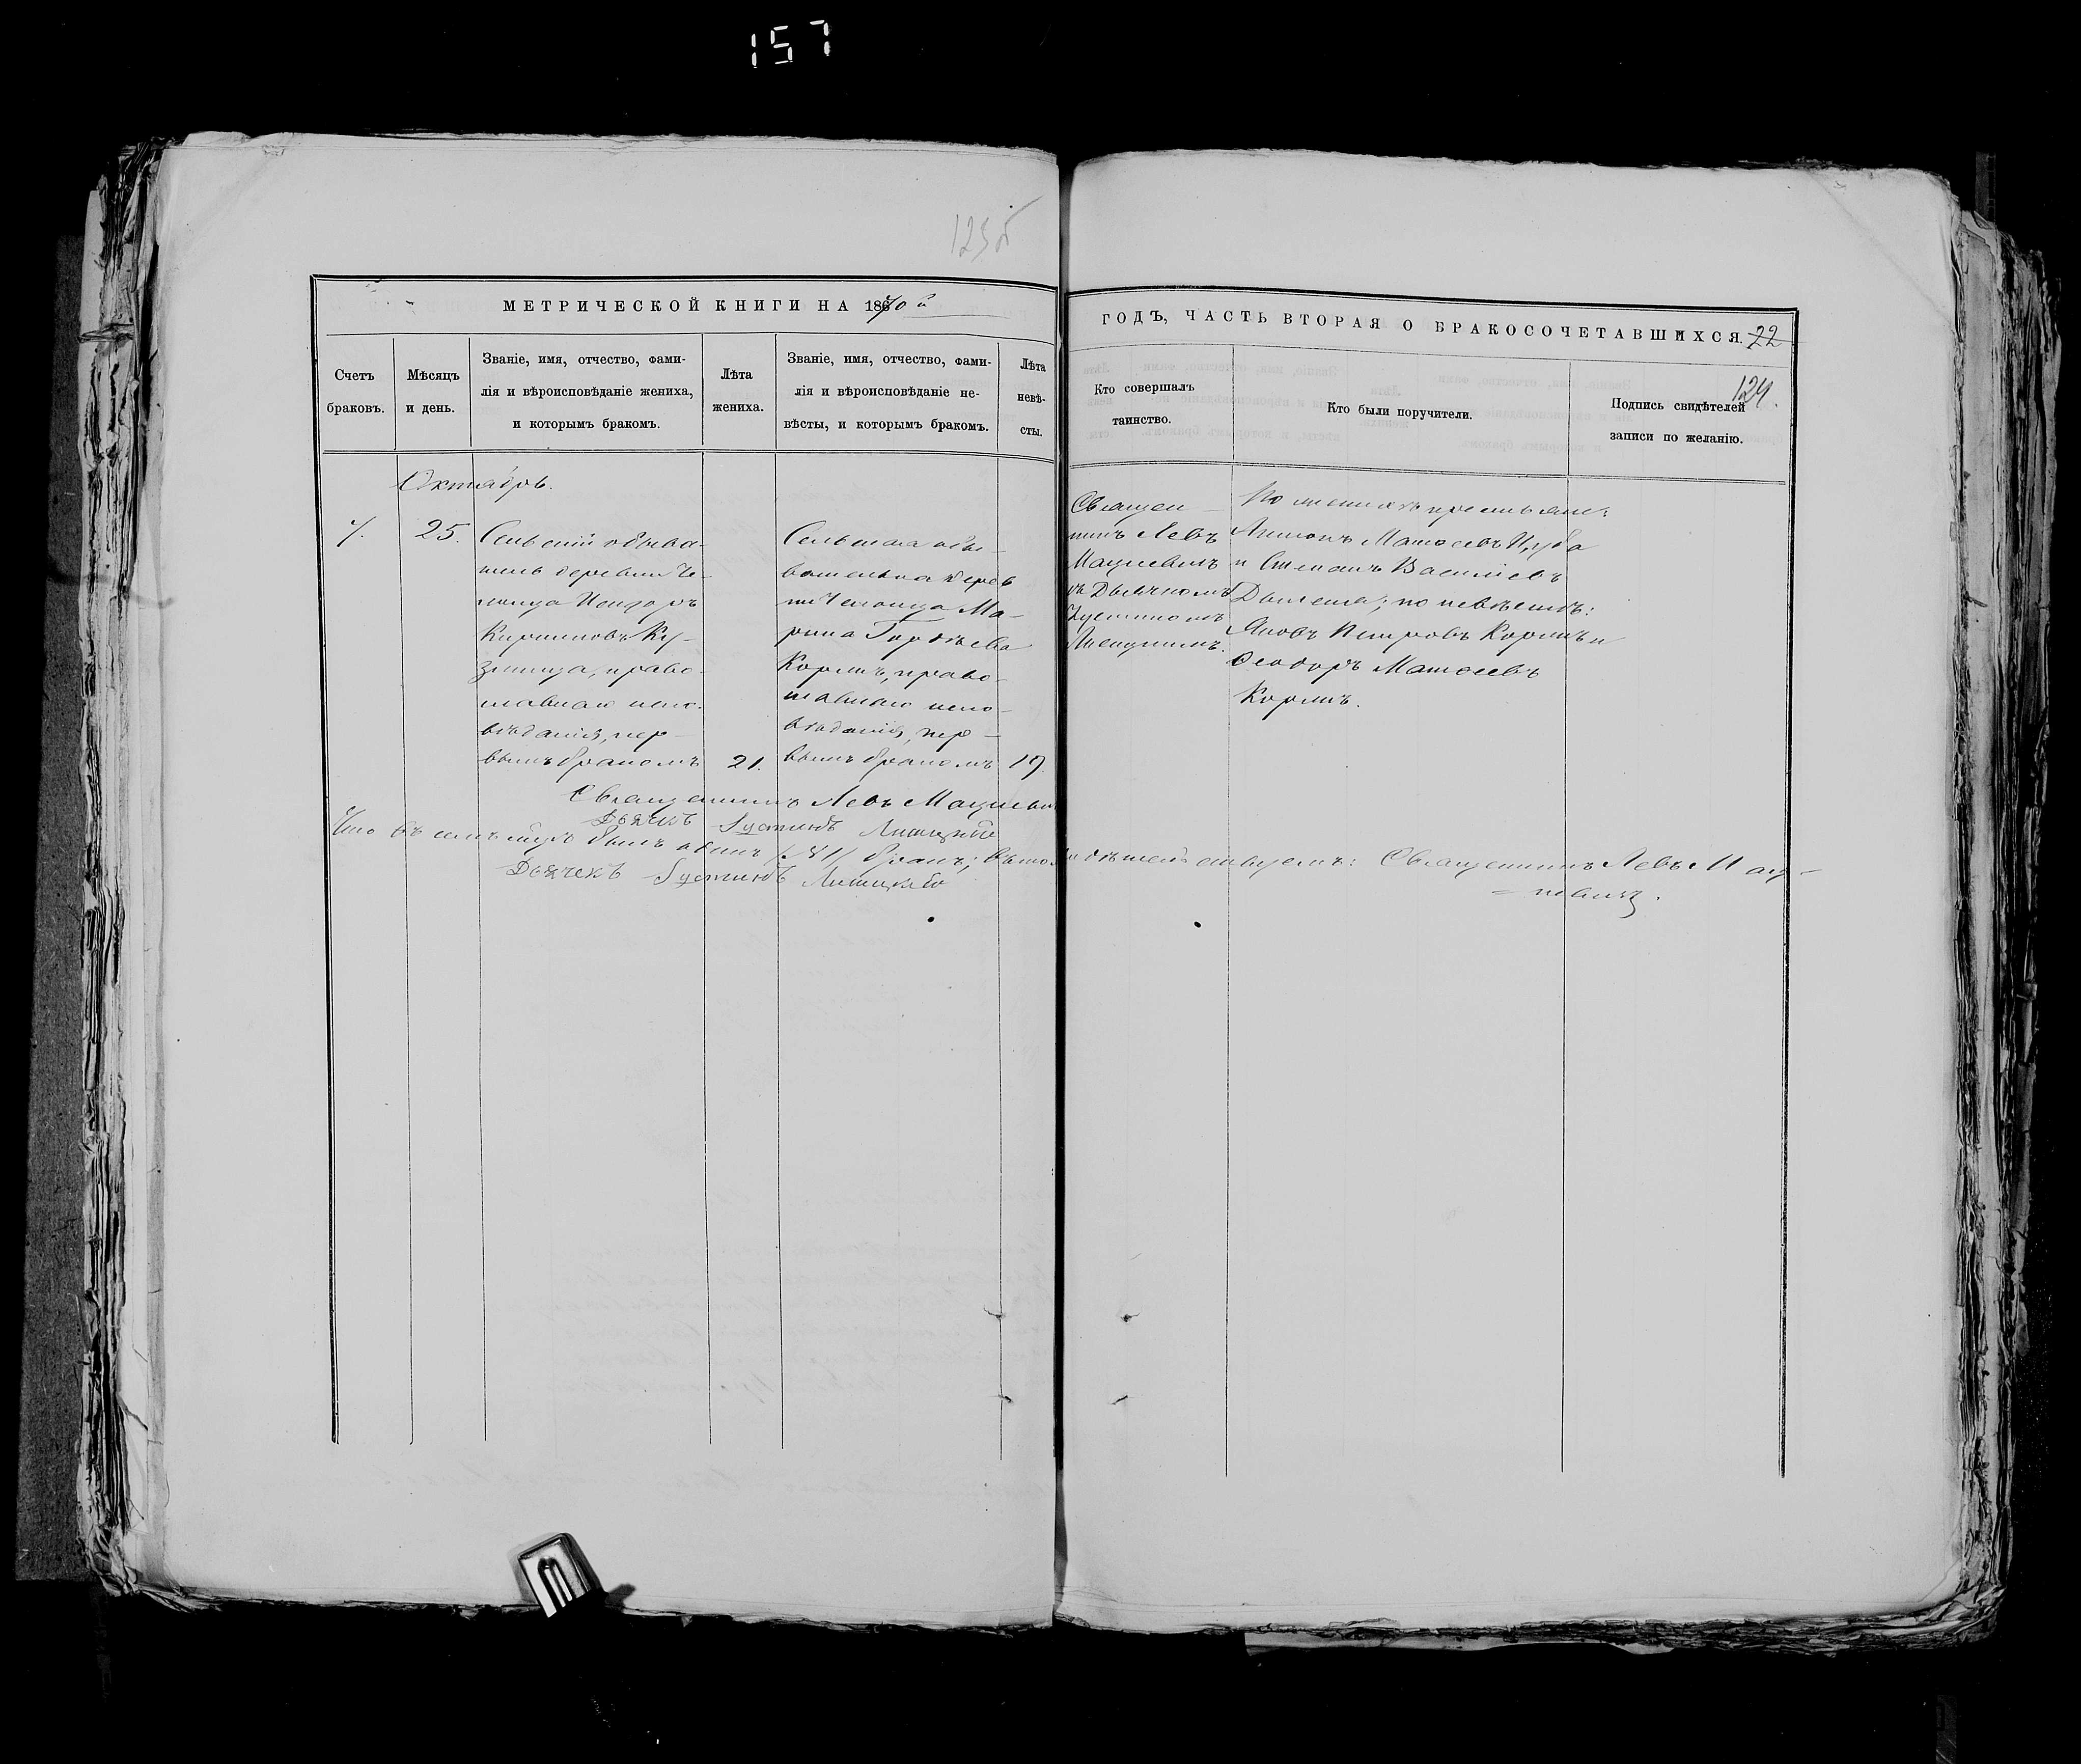 157
123об
МЕТРИЧЕСКОЙ КНИГИ НА 1870й
ГОДЪ, ЧАСТЬ ВТОРАЯ О БРАКОСОЧЕТАВШИХСЯ. 22
124.
Счетъ
браковъ.
Мѣсяцъ
и день.
Званіе, имя, отчество, фами-
лія и вѣроисповѣданіе жениха,
и которымъ бракомъ.
Лѣта
жениха.
Званіе, имя, отчество, фами-
лія и вѣроисповѣданіе не-
вѣсты, и которымъ бракомъ.
Лѣта
невѣ-
сты.
Кто совершалъ
таинство.
Кто были поручители.
Подпись свидѣтелей
записи по желанію.
Октябрь.
1.
25.
Сельскій обыва-
тель деревни Че-
Кирилловъ Ку-
право-
славнаго испо-
вѣданія, пер-
вымъ бракомъ
21.
Сельская обы-
вателька дерев
ни Ма-
рина Гордѣева
Корничъ, право-
славнаго испо-
вѣданія, пер-
вымъ бракомъ
19.
Священ-
никъ Левъ
Мацкевичъ
съ Дьячкомъ
Іустиномъ
Липецкимъ.
По женихѣ
Матѳеевъ
и Степанъ Василіевъ
по невѣстѣ:
Яковъ Петровъ Корничъ и
Ѳеодоръ Матѳеевъ
Корничъ.
Священникъ Левъ Мацкевичъ
Дьячекъ Іустинъ Липецкій
Что въ семъ былъ одинъ (№1) бракъ; въ томъ свидѣтельствуемъ: Священникъ Левъ Мац-
кевичъ.
Дьячекъ Іустинъ Липецкій